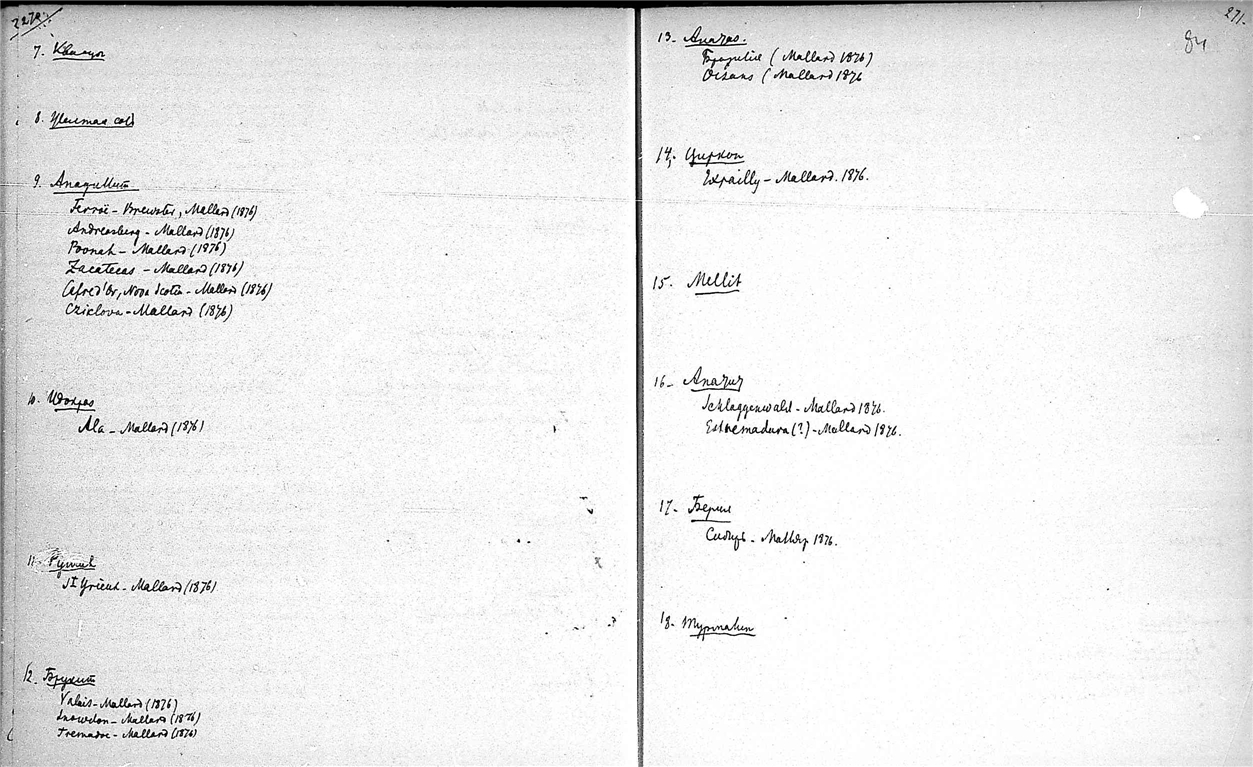 270.
7. Квасцы
8. Желтая соль
9. Апофиллит
Ferroë - Brewster, Mallard (1876)
Andreasberg - Mallard (1876)
Poonah - Mallard (1876)
Zacatecas - Mallard (1876)
Nova Scotia - Mallard (1876)
Cziclova - Mallard (1876)
10. Идокраз
Ala - Mallard (1876)
11. Рутил
St Yrieux - Mallard (1876)
12. Брукит
Valais - Mallard (1876)
Snowdon - Mallard (1876)
Tremadoc - Mallard (1876)
271.
84
13. Анатаз.
Бразилия (Mallard 1876)
Oisans (Mallard 1876
14. Циркон
Expailly - Mallard. 1876.
15. Mellit
16. Апатит
Schlaggenwald - Mallard 1876.
Estremadura (?) - Mallard 1876.
17. Берилл
Сибирь - Mallard 1876.
18. Турмалин